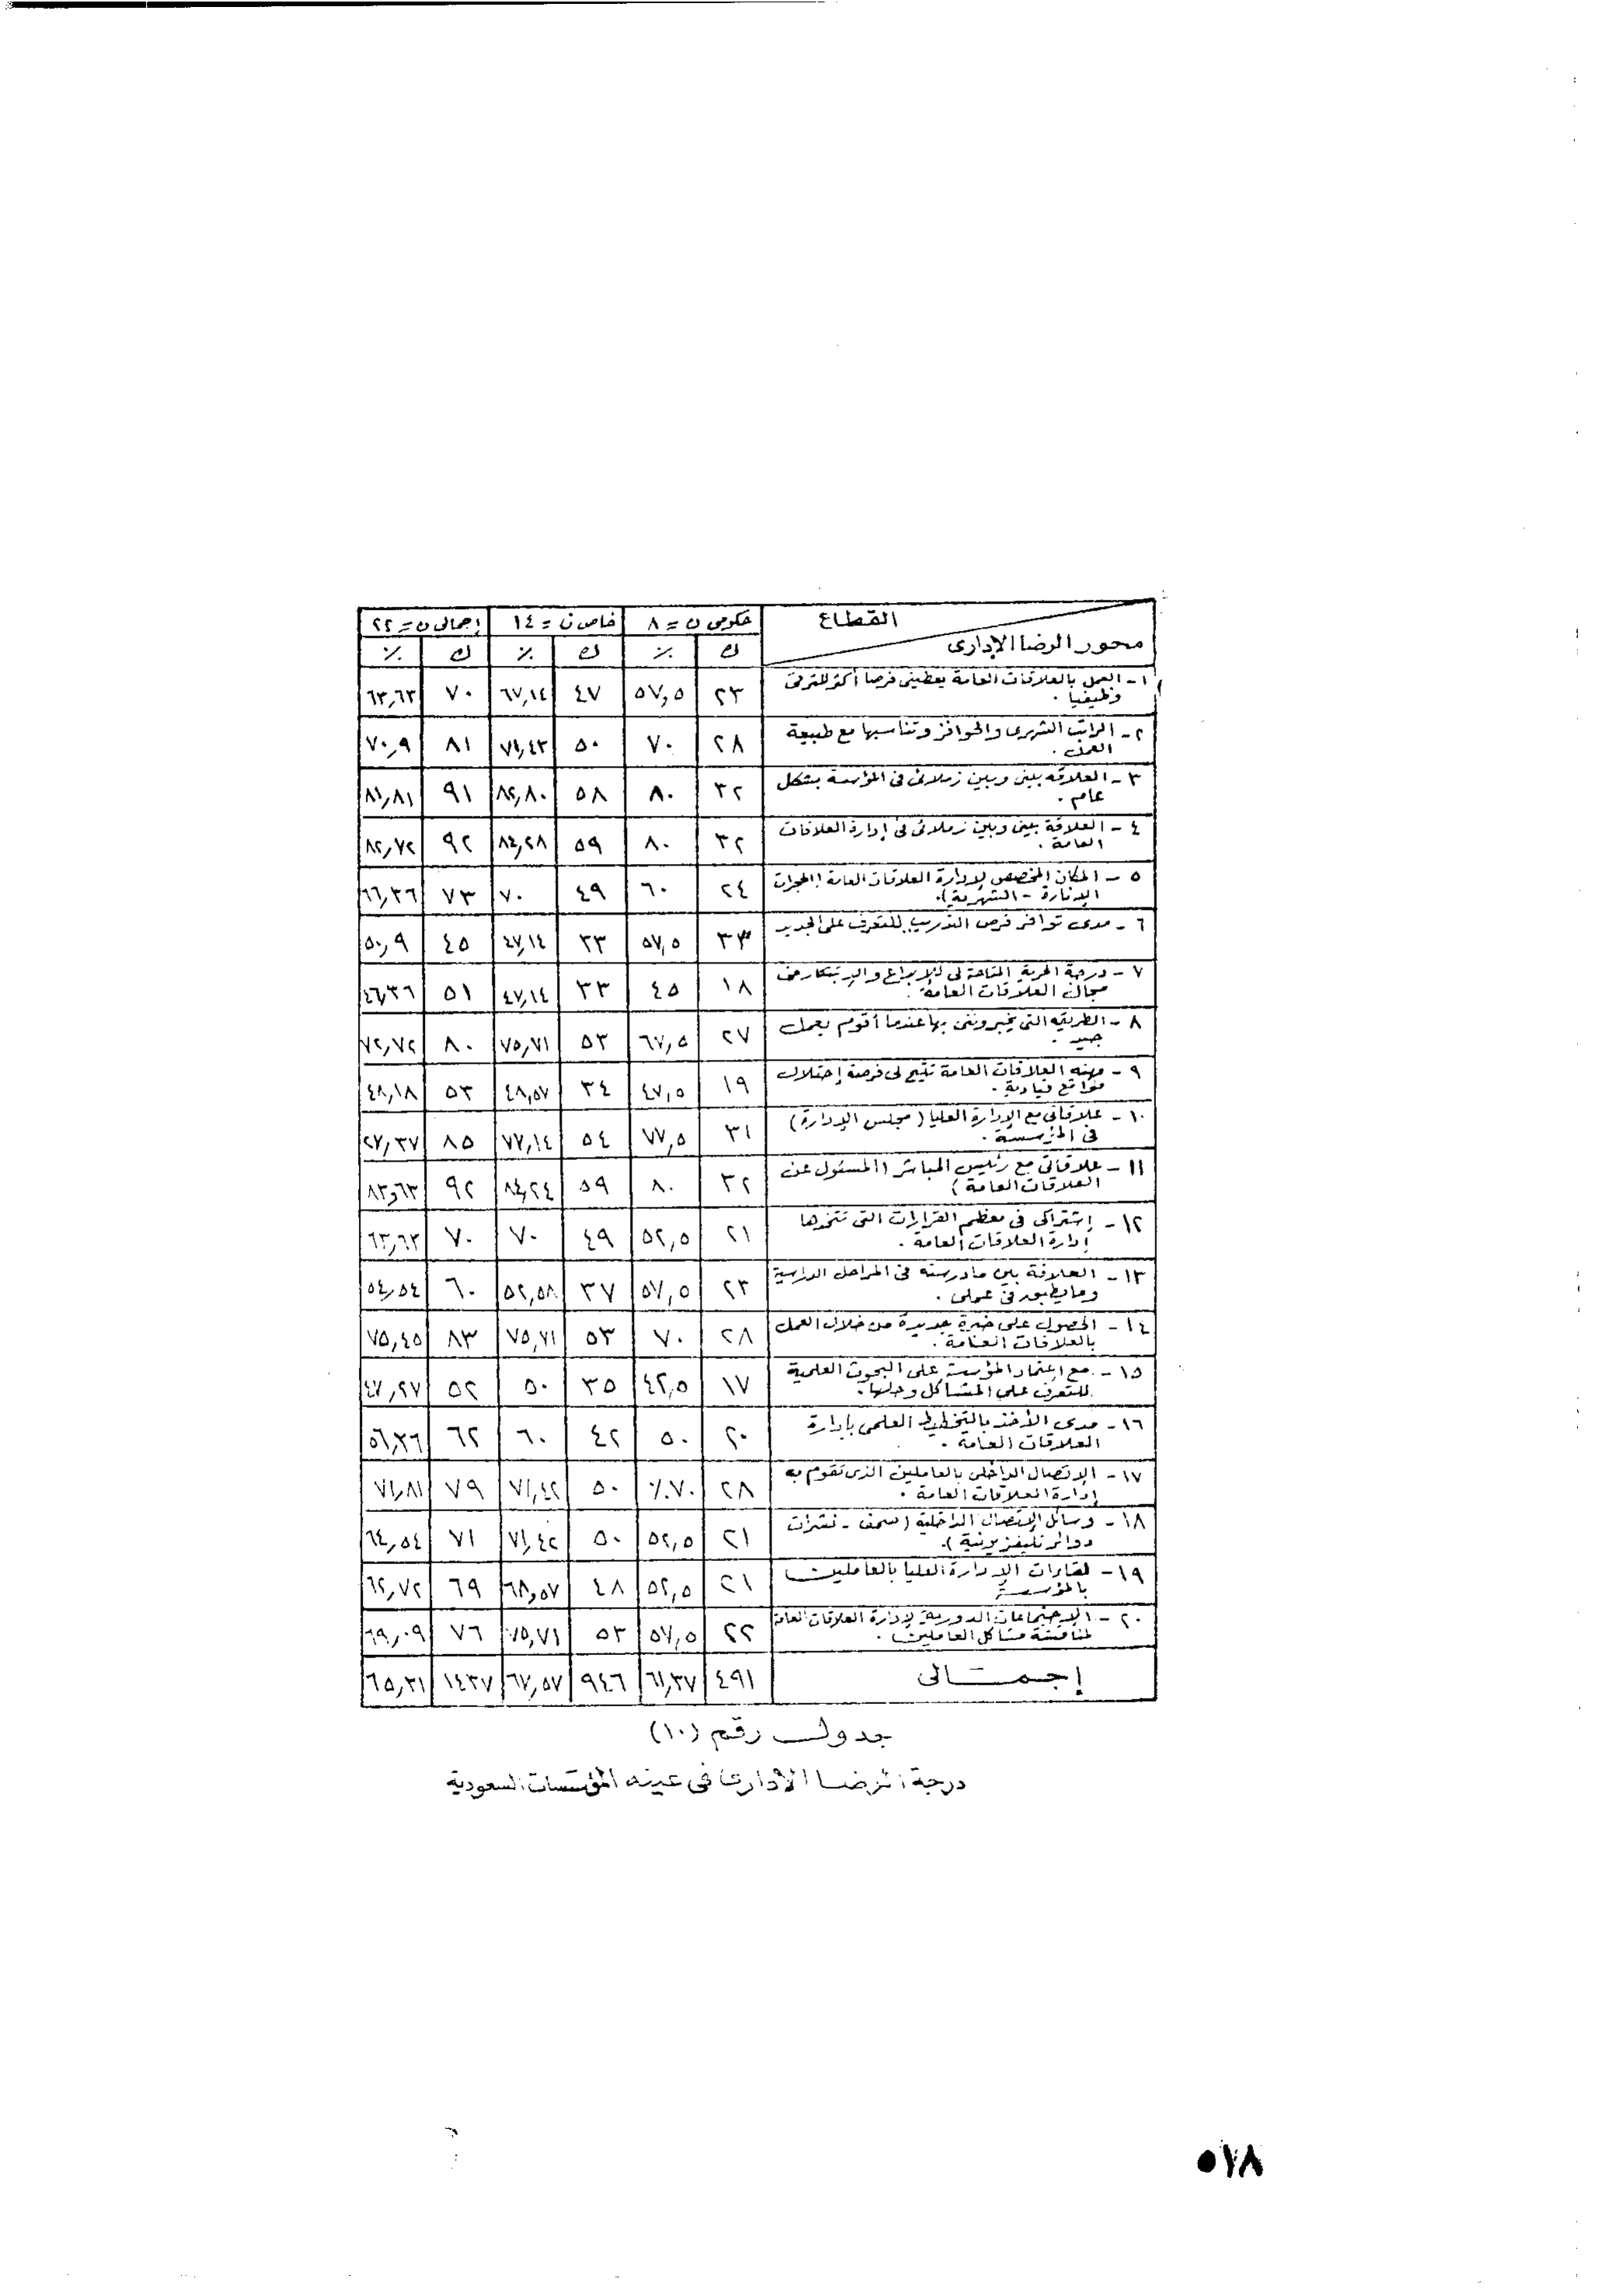 القطاع حكومى ن = ٨ خاص ن = ١٤ إجمالى ن = ٢٢
محور الرضا الإدارى ك ٪ ك ٪ ك ٪
١ - العمل بالعلاقات العامة يعطينى فرصا أكثر للترقى
وظيفيا . ٢٣ ٥٧,٥ ٤٧ ٦٧,١٤ ٧٠ ٦٣,٦٣
٢ - الراتب الشهرى والحوافز وتناسبها مع طبيعة
العمل . ٢٨ ٧٠ ٥٠ ٧١,٤٣ ٨١ ٧٠,٩
٣ - العلاقة بينى وبين زملائى فى المؤسسة بشكل
عام . ٣٢ ٨٠ ٥٨ ٨٢,٨٠ ٩١ ٨١,٨١
٤ - العلاقة بينى وبين زملائى فى إدارة العلاقات
العامة . ٣٢ ٨٠ ٥٩ ٨٤,٢٨ ٩٢ ٨٢,٧٢
٥ - المكان المخصص لإدارة العلاقات العامة (الحجرات
الإنارة - التهوية). ٢٤ ٦٠ ٤٩ ٧٠ ٧٣ ٦٦,٣٦
٦ - مدى توافر فرص التدريب للتعرف على الجديد ٥٧,٥ ٣٣ ٤٧,١٤ ٤٥ ٥٠,٩
٧ - درجة الحرية المتاحة لى للإبداع والإبتكار فى
مجال العلاقات العامة . ١٨ ٤٥ ٣٣ ٤٧,١٤ ٥١ ٤٦,٣٦
٨ - الطريقة التى يخبروننى بها عندما أقوم بعمل
جيد . ٢٧ ٦٧,٥ ٥٣ ٧٥,٧١ ٨٠ ٧٢,٧٢
٩ - مهنة العلاقات العامة تتيح لى فرصة إحتلال
مواقع قيادية . ١٩ ٤٧,٥ ٣٤ ٤٨,٥٧ ٥٣ ٤٨,١٨
١٠ - علاقاتى مع الإدارة العليا (مجلس الإدارة)
فى المؤسسة . ٣١ ٧٧,٥ ٥٤ ٧٧,١٤ ٨٥
١١ - علاقاتى مع رئيس المباشر (المسئول عن
العلاقات العامة) ٣٢ ٨٠ ٥٩ ٨٤,٢٤ ٩٢ ٨٣,٦٣
١٢ - إشتراكى فى معظم القرارات التى تتخذها
إدارة العلاقات العامة . ٢١ ٥٢,٥ ٤٩ ٧٠ ٧٠ ٦٣,٦٣
١٣ - العلاقة بين مادرسته فى المراحل الدراسية
وما يطبق فى عملى . ٢٣ ٥٧,٥ ٣٧ ٥٢,٥٨ ٦٠ ٥٤,٥٤
١٤ - الحصول على خبرة جديدة من خلال العمل
بالعلاقات العامة . ٢٨ ٧٠ ٥٣ ٧٥,٧١ ٨٣ ٧٥,٤٥
١٥ - مع إعتماد المؤسسة على البحوث العلمية
للتعرف على المشاكل وحلها . ١٧ ٤٢,٥ ٣٥ ٥٠ ٥٢ ٤٧,٢٧
١٦ - مدى الأخذ بالتخطيط العلمى بإدارة
العلاقات العامة . ٢٠ ٥٠ ٤٢ ٦٠ ٦٢ ٥٦,٣٦
١٧ - الإتصال الداخلى بالعاملين الذى تقوم به
إدارة العلاقات العامة . ٢٨ ٧٠٪ ٥٠ ٧١,٤٢ ٧٩ ٧١,٨١
١٨ - وسائل الإتصال الداخلية (صحف - نشرات
دوائر تليفزيونية). ٢١ ٥٢,٥ ٥٠ ٧١,٤٢ ٧١ ٦٤,٥٤
١٩ - لقاءات الإدارة العليا بالعاملين
بالمؤسسة ٢١ ٥٢,٥ ٤٨ ٦٨,٥٧ ٦٩ ٦٢,٧٢
٢٠ - الإجتماعات الدورية لإدارة العلاقات العامة
لمناقشة مشاكل العاملين . ٢٢ ٥٧,٥ ٥٣ ٧٥,٧١ ٧٦ ٦٩,٠٩
إجمالى ٤٩١ ٦١,٣٧ ٩٤٦ ٦٧,٥٧ ١٤٣٧ ٦٥,٣١
جدول رقم (١٠)
درجة الرضا الادارى فى عينه المؤسسات السعودية
٥٧٨